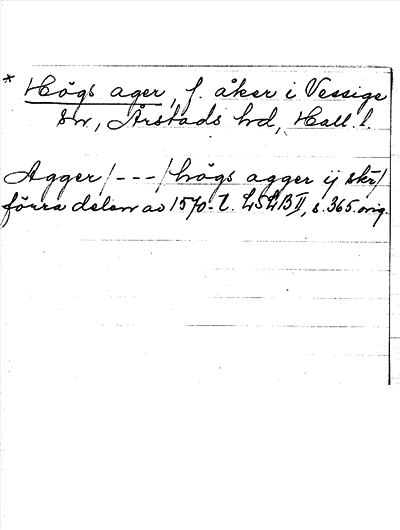 * Högs ager, f. åker i Vessige
sn, Årstads hd, Hall. l.
Agger /---/ högs agger ij skr/
förra delen av 1570-t. LSLB II, s. 365. orig.